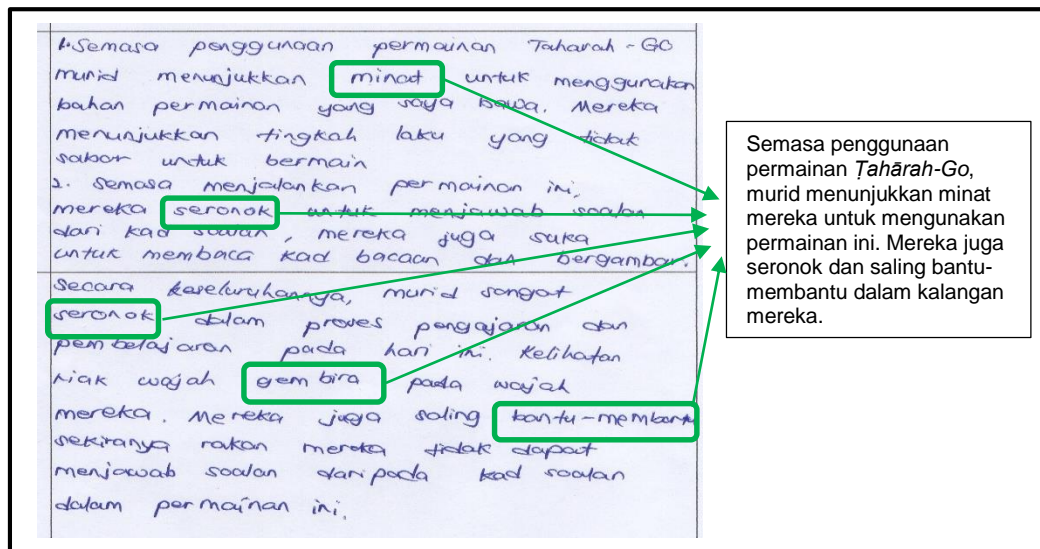 1. Semasa penggunaan permainan Taharah-GO
murid menunjukkan minat untuk menggunakan
bahan permainan yang saya bawa. Mereka
menunjukkan tingkah laku yang tidak
sabar untuk bermain
2. Semasa menjalankan permainan ini,
mereka seronok untuk menjawab soalan
dari kad soalan, mereka juga suka
untuk membaca kad bacaan dan bergambar.
Secara keseluruhannya, murid sangat
seronok dalam proses pengajaran dan
pembelajaran pada hari ini. Kelihatan
riak wajah gembira pada wajah
mereka. Mereka juga saling bantu-membantu
sekiranya rakan mereka tidak dapat
menjawab soalan daripada kad soalan
dalam permainan ini.
Semasa penggunaan
permainan Ṭahārah-Go,
murid menunjukkan minat
mereka untuk mengunakan
permainan ini. Mereka juga
seronok dan saling bantu-
membantu dalam kalangan
mereka.